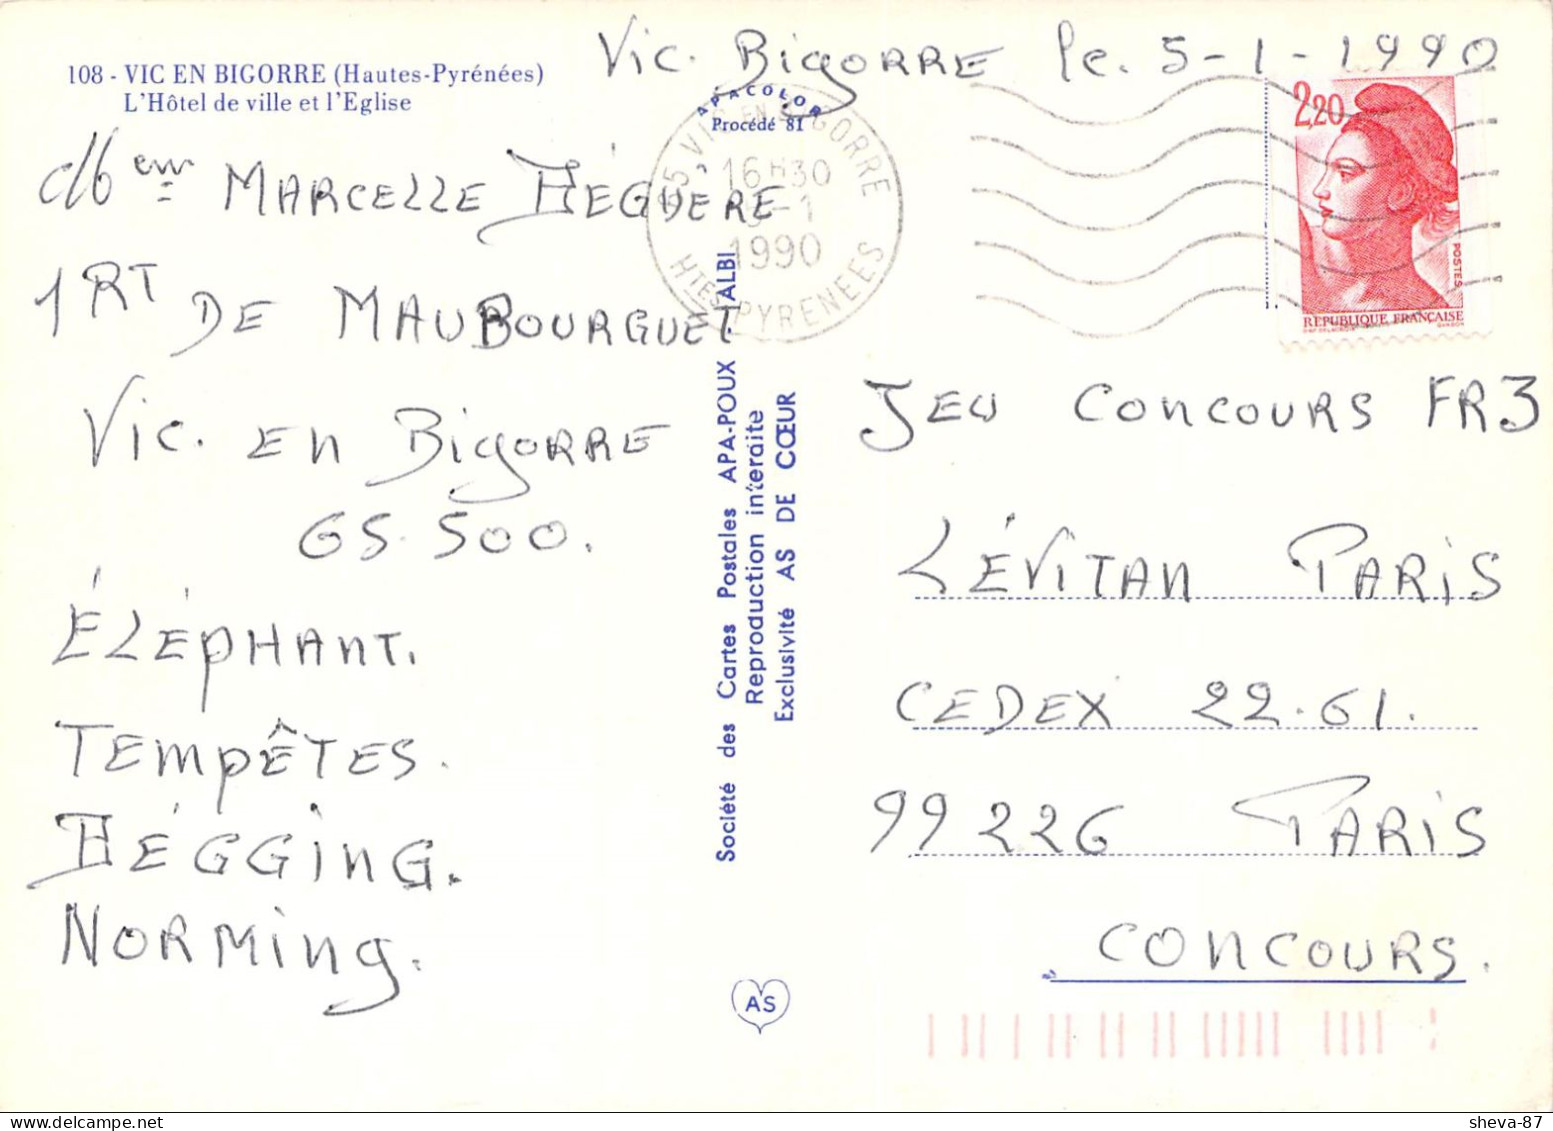 108 - VIC EN BIGORRE (Hautes-Pyrénées)
L'Hôtel de ville et l'Eglise
Vic. BigoRRE le. 5-1-1990
APACOLOR
Procédé 81
65 VIC EN BIGORRE
16H30
5-1
1990
HTES PYRENEES
2,20
POSTES
REPUBLIQUE FRANÇAISE
Mem MARCELLE HÉGUERE
1 RT DE MAUBOURGUET
Vic. en BigoRRE
65.500.
ÉLÉPHANT.
TEMPÊTES.
HÉGGING.
NORMING.
Société des Cartes Postales APA-POUX - ALBI
Reproduction interdite
Exclusivité AS DE CŒUR
AS
JEU CONCOURS FR3
LÉVITAN PARIS
CEDEX 22.61.
99226 PARIS
CONCOURS.
sheva-87